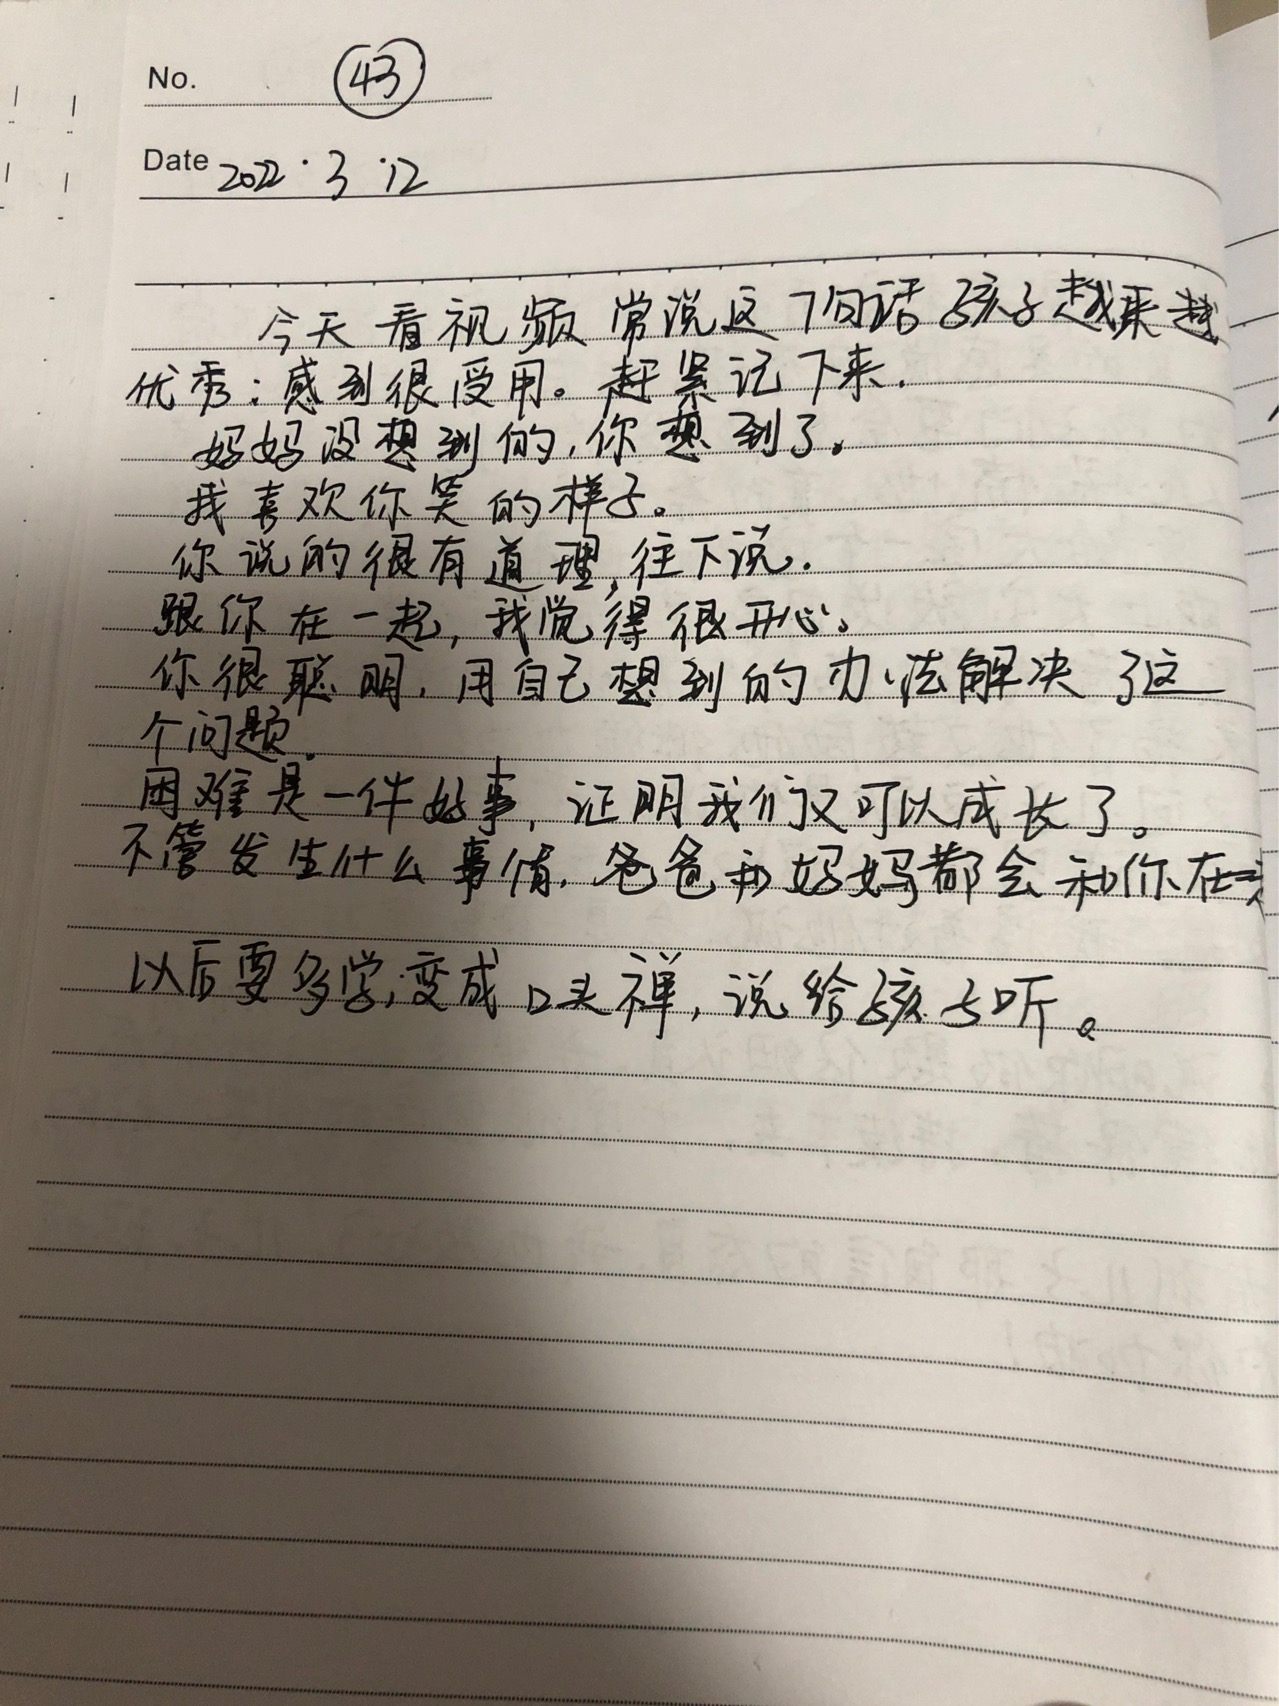 No. 43
Date 2022.3.12
今天看视频 常说这7句话 孩子越来越
优秀：感到很受用。赶紧记下来.
妈妈没想到的,你想到了。
我喜欢你笑的样子。
你说的很有道理,往下说.
跟你在一起,我觉得很开心。
你很聪明,用自己想到的办法解决了这
个问题.
困难是一件好事,证明我们又可以成长了。
不管发生什么事情,爸爸和妈妈都会和你在一起
以后要多学,变成口头禅,说给孩子听。